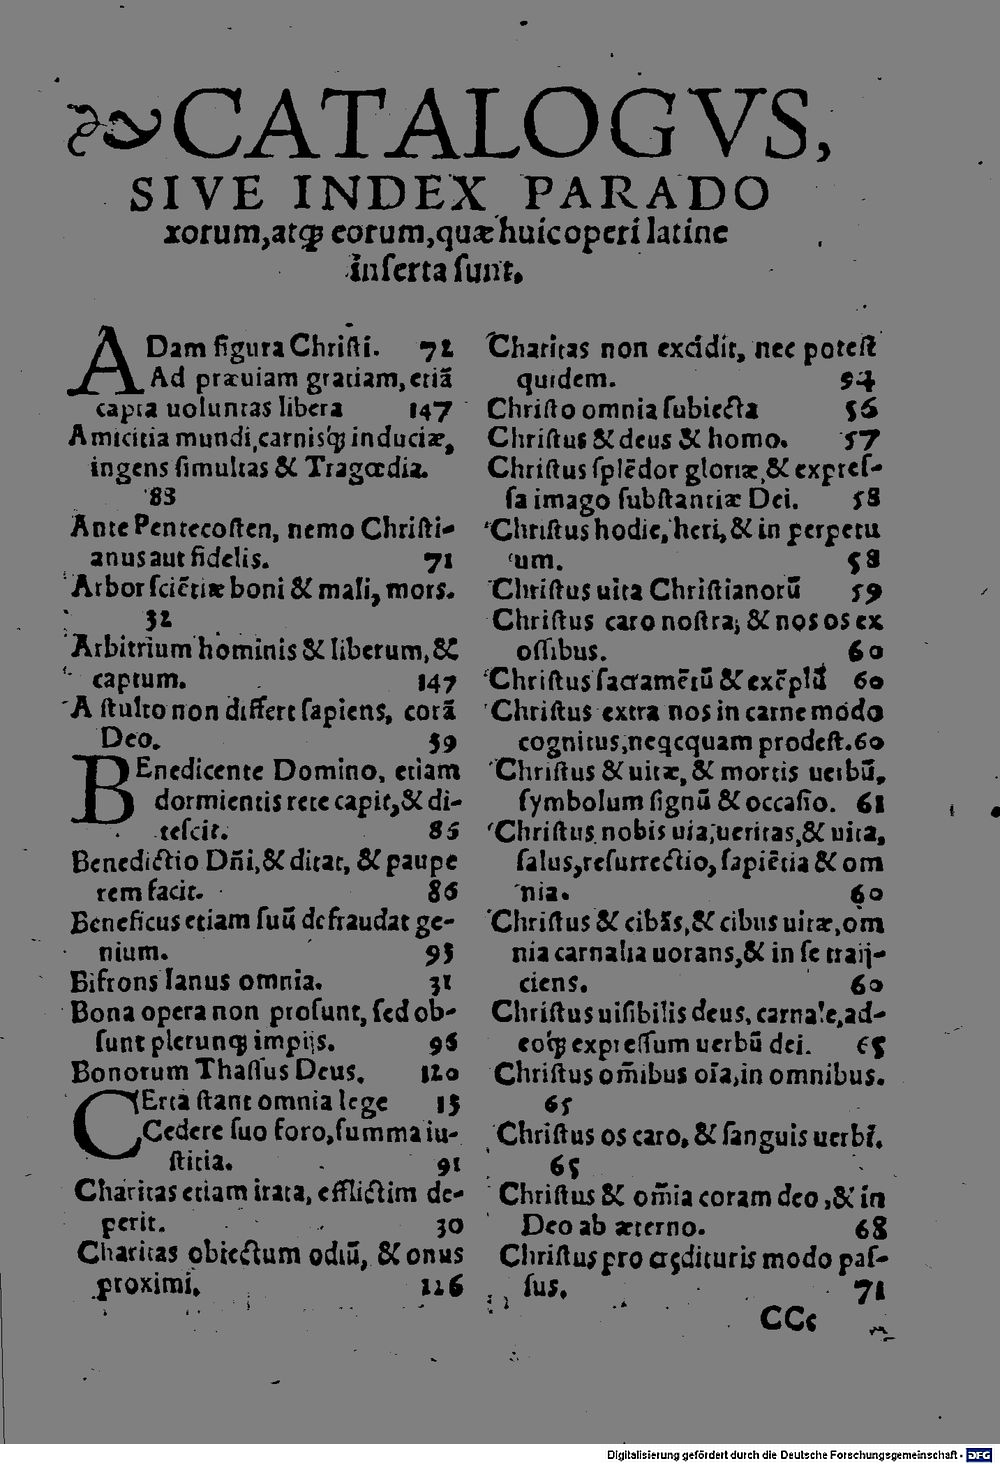 CATALOGVS,
SIVE INDEX PARADO
xorum, atq́ꝫ eorum, quæ huic operi latine
inſerta ſunt.
ADam figura Chriſti. 72
Ad præuiam gratiam, etiā
capta uoluntas libera 147
Amicitia mundi, carnisq́ꝫ induciæ,
ingens ſimultas & Tragœdia.
83
Ante Pentecoſten, nemo Chriſti-
anus aut fidelis. 71
Arbor ſciētiæ boni & mali, mors.
32
Arbitrium hominis & liberum, &
captum. 147
A ſtulto non differt ſapiens, corā
Deo. 59
BEnedicente Domino, etiam
dormientis rete capit, & di-
teſcit. 86
Benedictio Dñi, & ditat, & paupe
rem facit. 86
Beneficus etiam ſuū defraudat ge-
nium. 95
Bifrons Ianus omnia. 31
Bona opera non proſunt, ſed ob-
ſunt plerunqꝫ impijs. 96
Bonorum Thaſſus Deus. 120
CErta ſtant omnia lege 15
Cedere ſuo foro, ſumma iu-
ſtitia. 91
Charitas etiam irata, efflictim de-
perit. 30
Charitas obiectum odiū, & onus
proximi. 126
Charitas non excidit, nec poteſt
quidem. 94
Chriſto omnia ſubiecta 56
Chriſtus & deus & homo. 57
Chriſtus ſplēdor gloriæ, & expreſ-
ſa imago ſubſtantiæ Dei. 58
Chriſtus hodie, heri, & in perpetu
um. 58
Chriſtus uita Chriſtianorū 59
Chriſtus caro noſtra, & nos os ex
oſſibus. 60
Chriſtus ſacramētū & exēplū 60
Chriſtus extra nos in carne modo
cognitus, neqcquam prodeſt. 60
Chriſtus & uitæ, & mortis uerbū,
ſymbolum ſignū & occaſio. 61
Chriſtus nobis uia, ueritas, & uita,
ſalus, reſurrectio, ſapiētia & om
nia. 60
Chriſtus & cibās, & cibus uitæ, om
nia carnalia uorans, & in ſe traij-
ciens. 60
Chriſtus uiſibilis deus, carnale, ad-
eoq́ꝫ expreſſum uerbū dei. 65
Chriſtus om̄ibus oīa, in omnibus.
65
Chriſtus os caro, & ſanguis uerbī.
65
Chriſtus & om̄ia coram deo, & in
Deo ab æterno. 68
Chriſtus pro credituris modo paſ-
ſus. 71
CCc
Digitalisierung gefördert durch die Deutsche Forschungsgemeinschaft - DFG